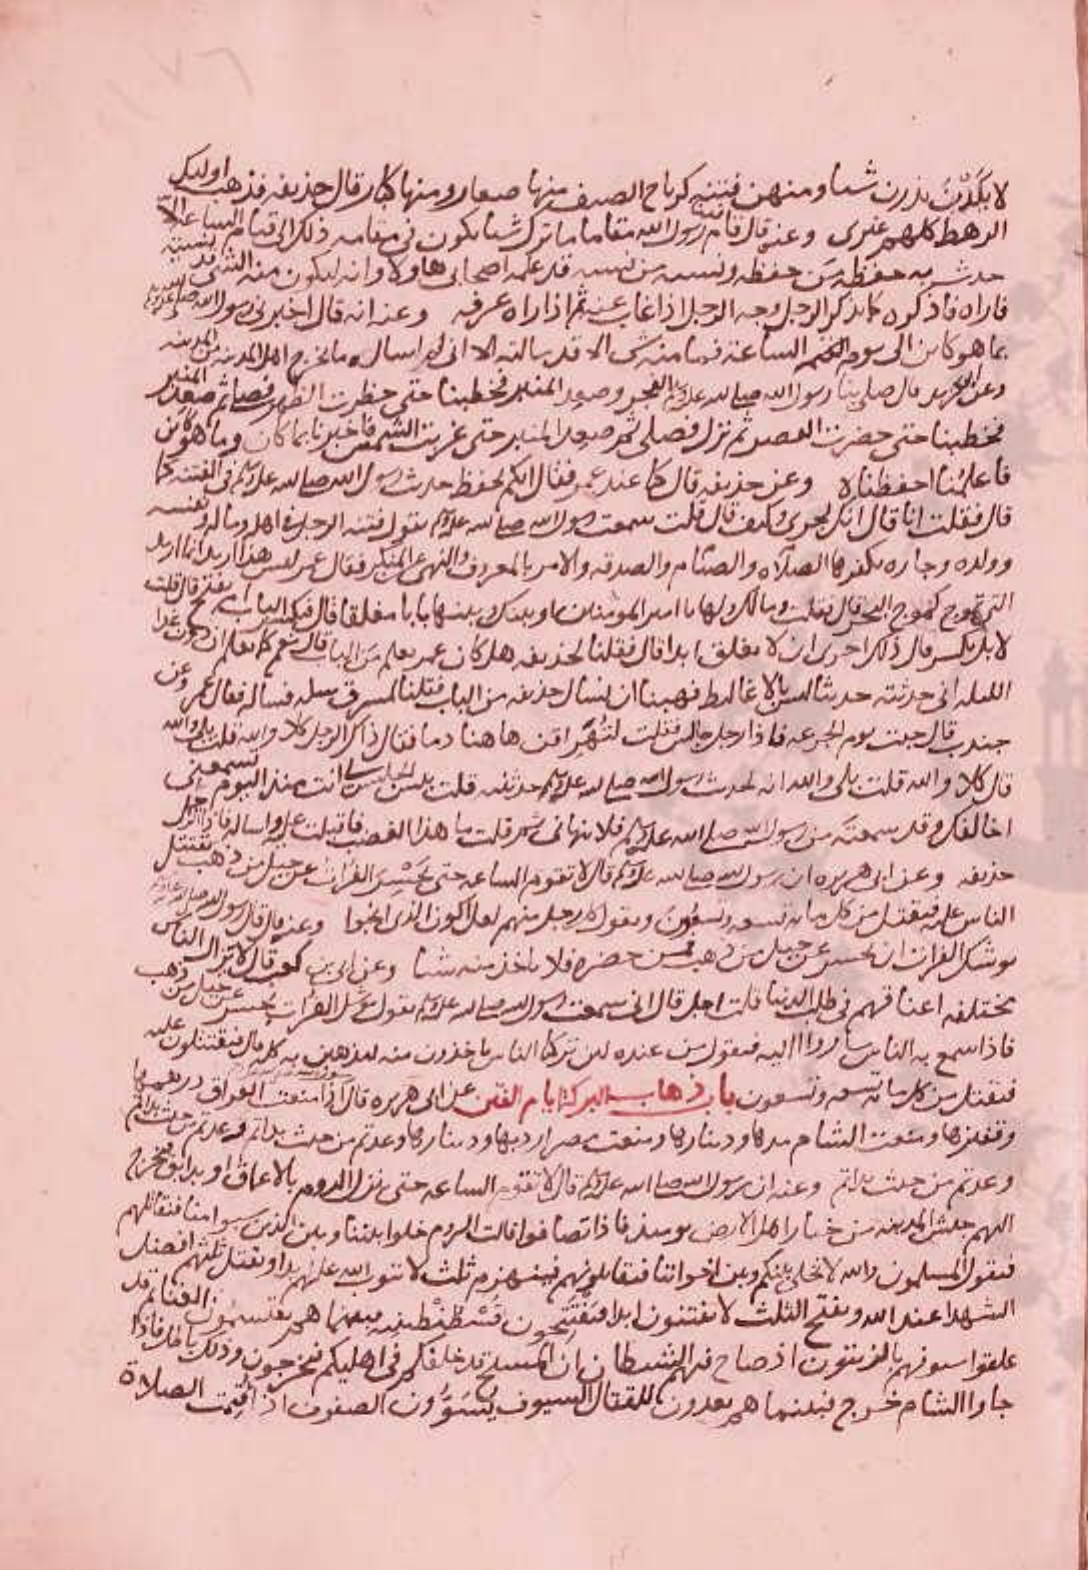 لا يكدن يذرن شيا ومنهن فتنة كرياح الصيف منها صغار ومنها كبار قال حذيفه فذهب اوليك
الرهط كلهم غيري وعنه قال قام فينا رسول الله مقاما ما ترك شيا يكون في مقامه ذلك الى قيام الساعة الا
حدث به حفظه من حفظه ونسيه من نسيه قد علمه اصحابي هاولا وانه ليكون منه الشي قد نسيته
فاراه فاذكره كما يذكر الرجل وجه الرجل اذا غاب عنه ثم اذا راه عرفه وعنه انه قال اخبرني رسول الله صلى الله عليه وسلم
بما هو كاين الى يوم الساعة فما منه شي الا قد سالته الا اني لم اساله ما يخرج اهل المدينه من المدينه
وعن قال صلى بنا رسول الله صلى الله عليه وسلم الفجر وصعد المنبر فخطبنا حتى حضرت الظهر فصلى ثم صعد المنبر
فخطبنا حتى حضرت العصر ثم نزل فصلى ثم صعد المنبر حتى غربت الشمس فاخبرنا بما كان وما هو كاين
فاعلمنا احفظنا وعن حذيفه قال كنا عند عمر فقال ايكم يحفظ حديث رسول الله صلى الله عليه وسلم في الفتنه كما
قال فقلت انا قال انك لجري وكيف قال قلت سمعت رسول الله صلى الله عليه وسلم يقول فتنه الرجل في اهله وماله ونفسه
وولده وجاره يكفرها الصلاه والصيام والصدقه والامر بالمعروف والنهي عن المنكر فقال عمر ليس هذا اريد انما اريد
التي تموج كموج البحر قال فقلت ومالك ولها يا امير المومنين ان بينك وبينها بابا مغلقا قال فيكسر الباب ام يفتح قال قلت
لا بل يكسر قال ذلك احرى ان لا يغلق ابدا قال فقلنا لحذيفه هل كان عمر يعلم من الباب قال نعم كما يعلم ان دون غدا
الليله اني حدثته حديثا ليس بالاغاليط فهبنا ان نسال حذيفه من الباب فقلنا لمسروق سله فساله فقال عمر وعن
جندب قال جيت يوم الجرعه فاذا رجل جالس فقلت لتهراقن هاهنا دما فقال ذاك الرجل كلا والله قلت بلى والله
قال كلا والله قلت بلى والله انه لحديث رسول الله صلى الله عليه وسلم حدثنيه قلت بيس الجليس لي انت منذ اليوم تسمعني
اخالفك وقد سمعته من رسول الله صلى الله عليه وسلم فلا تنهاني ثم قلت ما هذا الغضب فاقبلت عليه واساله فاذا الرجل
حذيفه وعن ابي هريره ان رسول الله صلى الله عليه وسلم قال لا تقوم الساعه حتى يحسر الفرات عن جبل من ذهب يقتتل
الناس عليه فيقتل من كل مايه تسعه وتسعون ويقول كل رجل منهم لعلي اكون الذي انجوا وعنه قال قال رسول الله صلى الله عليه وسلم
يوشك الفرات ان يحسر عن جبل من ذهب فمن حضره فلا ياخذ منه شيا وعن ابي بن كعب قال لا يزال الناس
مختلفه اعناقهم في طلب الدنيا قلت اجل قال اني سمعت رسول الله صلى الله عليه وسلم يقول يوشك الفرات يحسر عن جبل من ذهب
فاذا سمع به الناس ساروا اليه فيقول من عنده لين تركنا الناس ياخذون منه ليذهبن به كله قال فيقتتلون عليه
فيقتل من كل مايه تسعه وتسعون باب ذهاب البركة ايام الفتن عن ابي هريره قال اذا منعت العراق درهمها
وقفيزها ومنعت الشام مدها ودينارها ومنعت مصر اردبها ودينارها وعدتم من حيث بداتم وعدتم من حيث بداتم
وعدتم من حيث بداتم وعنه ان رسول الله صلى الله عليه وسلم قال لا تقوم الساعه حتى ينزل الروم بالاعماق او بدابق فيخرج
اليهم جيش المدينه من خيار اهل الارض يوميذ فاذا تصافوا قالت الروم خلوا بيننا وبين الذين سبوا منا فنقاتلهم
فيقول المسلمون والله لا نخلي بينكم وبين اخواننا فيقاتلونهم فينهزم ثلث لا يتوب الله عليهم ابدا ويقتل ثلثهم افضل
الشهدا عند الله ويفتح الثلث لا يفتنون ابدا فيفتتحون قسطنطينيه فبينما هم يقتسمون الغنايم قد
علقوا سيوفهم بالزيتون اذ صاح فيهم الشيطان ان المسيح قد خلفكم في اهليكم فيخرجون وذلك باطل فاذا
جاوا الشام خرج فبينما هم يعدون للقتال السيوف يسوون الصفوف اذ اقيمت الصلاة